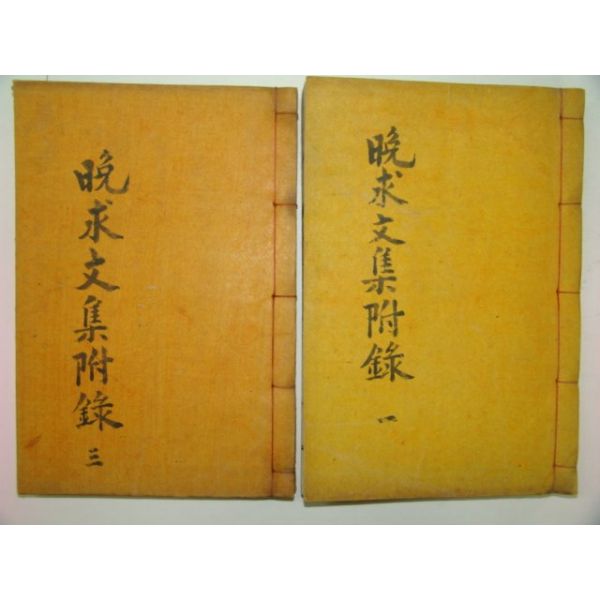 晩求文集附錄
一
晩求文集附錄
三